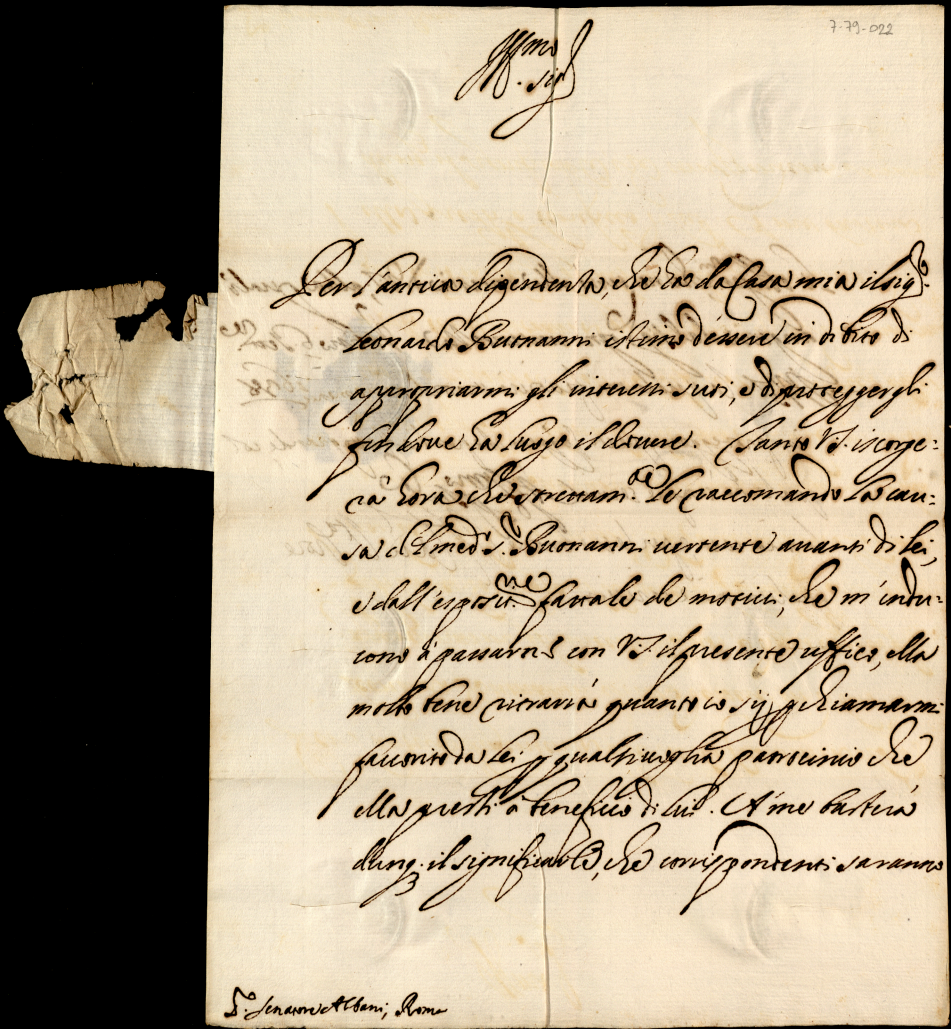 7-79-022
Ill.mo
sig.r
Per l'antica dipendenza, che ha da Casa mia il sig.r
Leonardo Buonanni istimo d'essere in debito di
appropriarmi gli interessi suoi, e di proteggergli
fin dove ha luogo il dovere. Tanto V.S. iscorge=
rà hora che strettam.te Le raccomando la cau=
sa del med.o s.r Buonanni vertente avanti di lei,
e dall'esposit.ne fattale de motivi, che m'indu=
cono à passare con V.S. il presente ufficio, ella
molto bene ritrarrà quanto io sij p chiamarmi
favorito da Lei p qualsivoglia patrocinio che
ella presti à beneficio di lui. A me basterà
dunq. il significarle, che corrispondenti saranno
S.r Senatore Albani, Roma